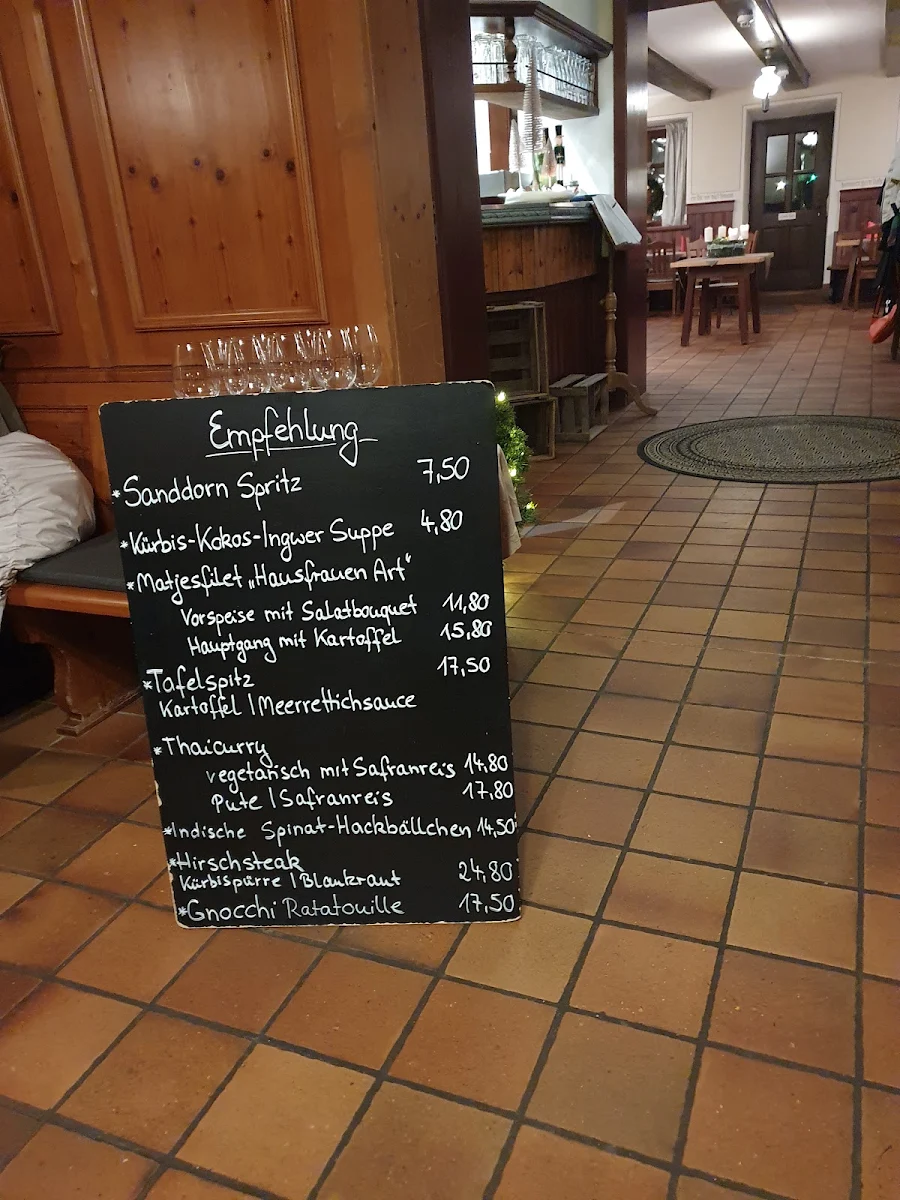 Empfehlung
*Sanddorn Spritz 7,50
*Kürbis-Kokos-Ingwer Suppe 4,80
*Matjesfilet „Hausfrauen Art"
Vorspeise mit Salatbouquet 11,80
Hauptgang mit Kartoffel 15,80
*Tafelspitz 17,50
Kartoffel | Meerrettichsauce
*Thaicurry
vegetarisch mit Safranreis 14,80
Pute | Safranreis 17,80
*Indische Spinat-Hackbällchen 14,50
*Hirschsteak
Kürbispürre | Blaukraut 24,80
*Gnocchi Ratatouille 17,50